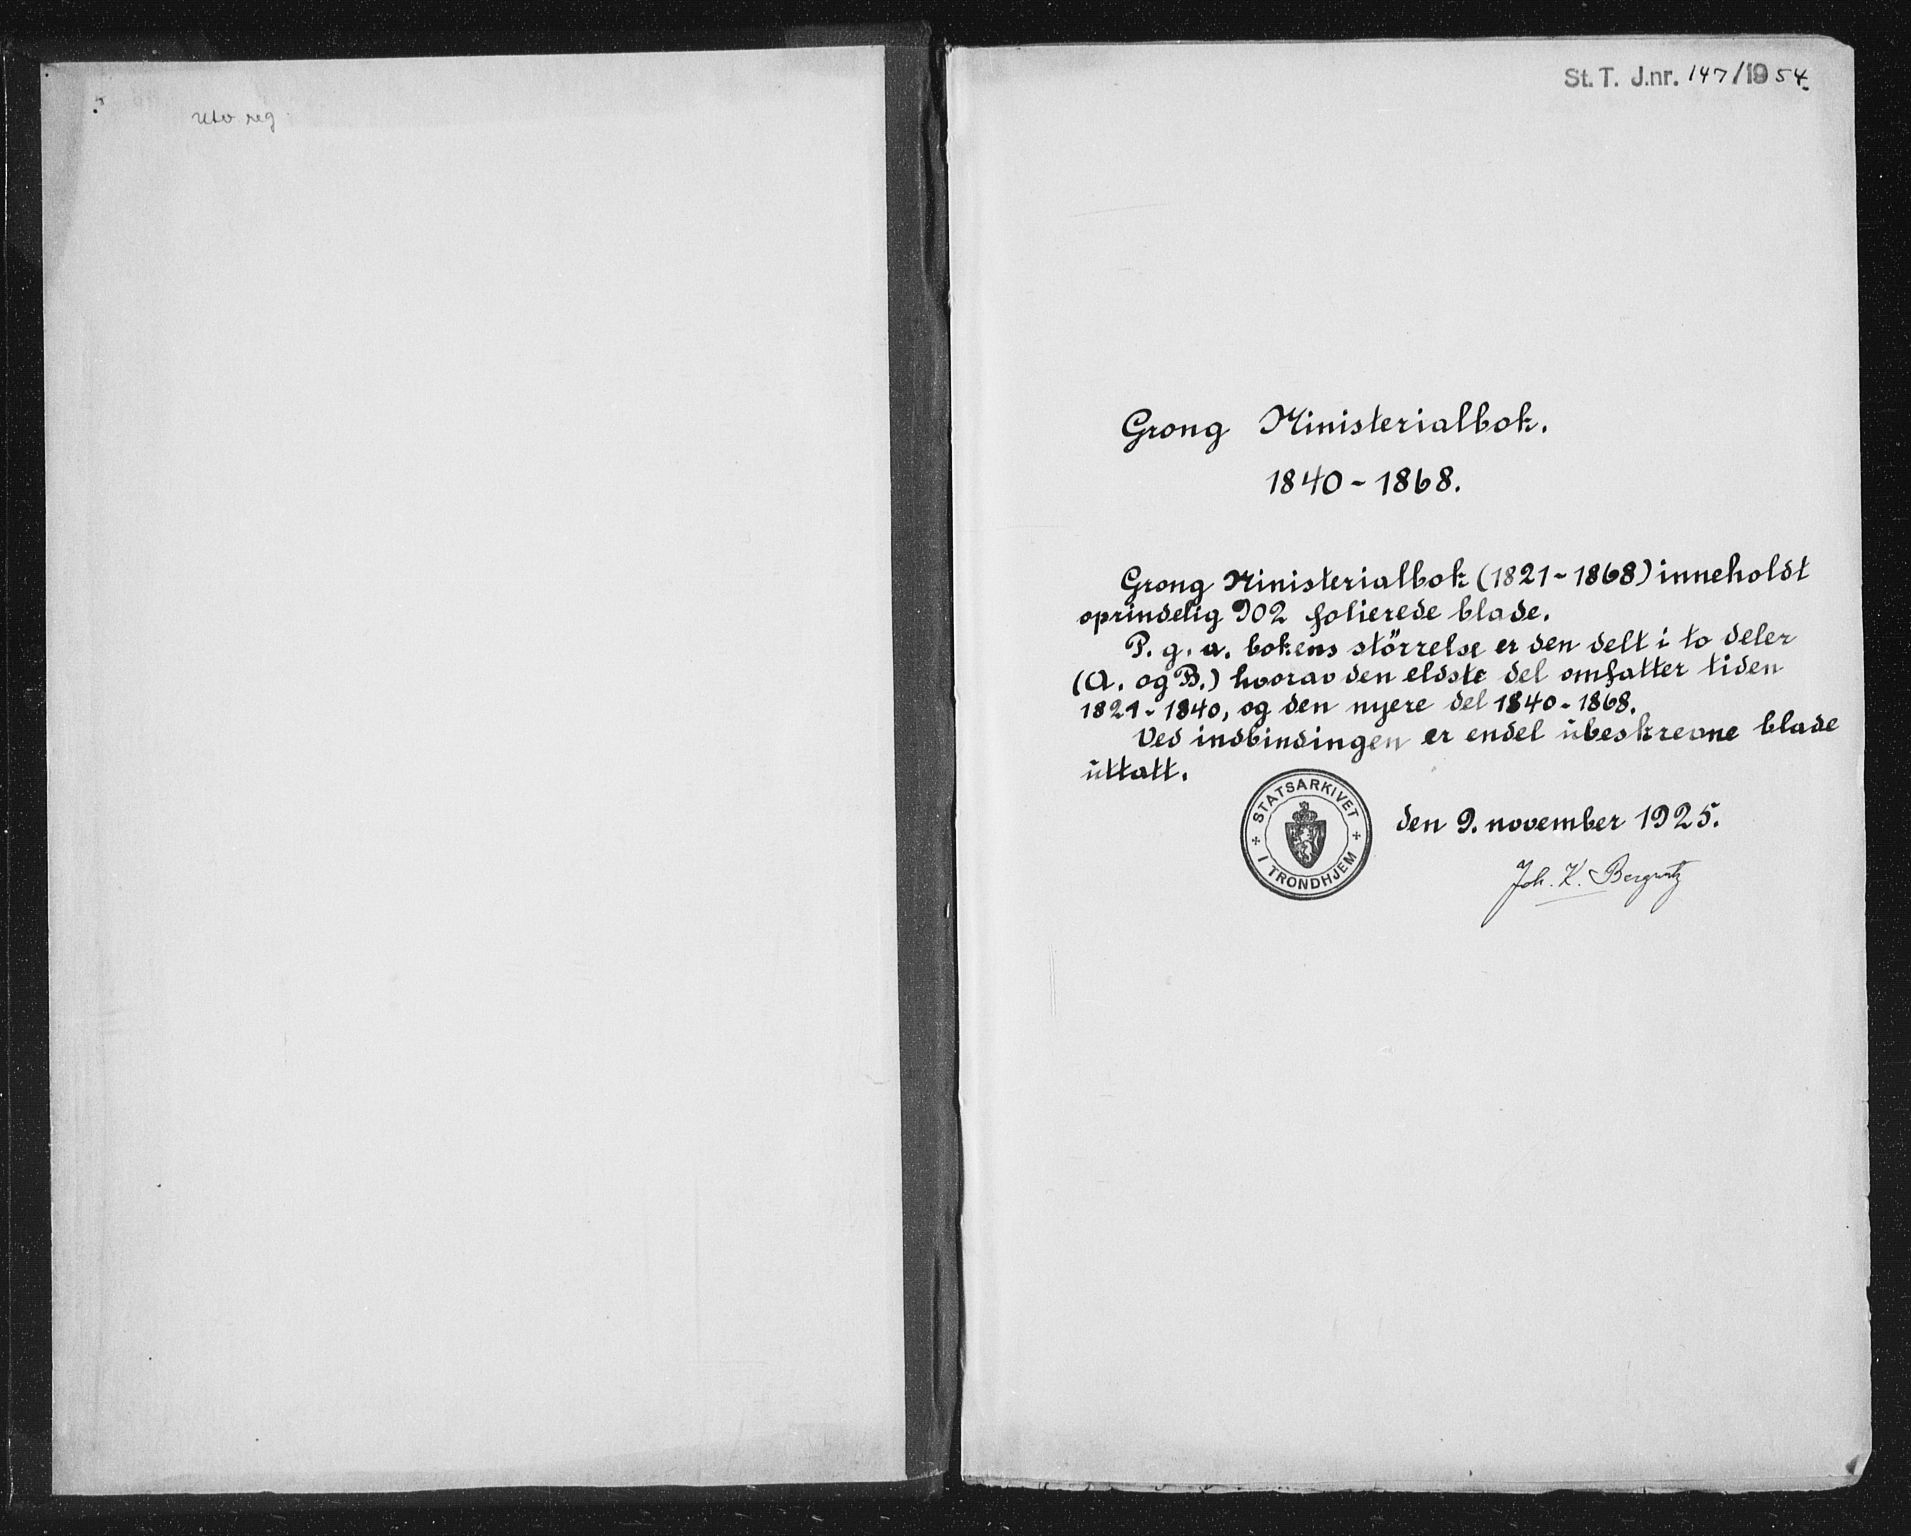 utv reg
St. T. J.nr. 147/1954.
Grong Ministerialbok.
1840-1868.
Grong Ministerialbok (1821-1868) inneholdt
oprindelig 902 folierede blade.
P. g. a. bokens størrelse er den delt i to deler
(A. og B.) hvorav den eldste del omfatter tiden
1821-1840, og den nyere del 1840-1868.
Ved indbindingen er endel ubeskrevne blade
uttatt.
STATSARKIVET I TRONDHJEM
den 9. november 1925.
Joh. K. Bergwitz